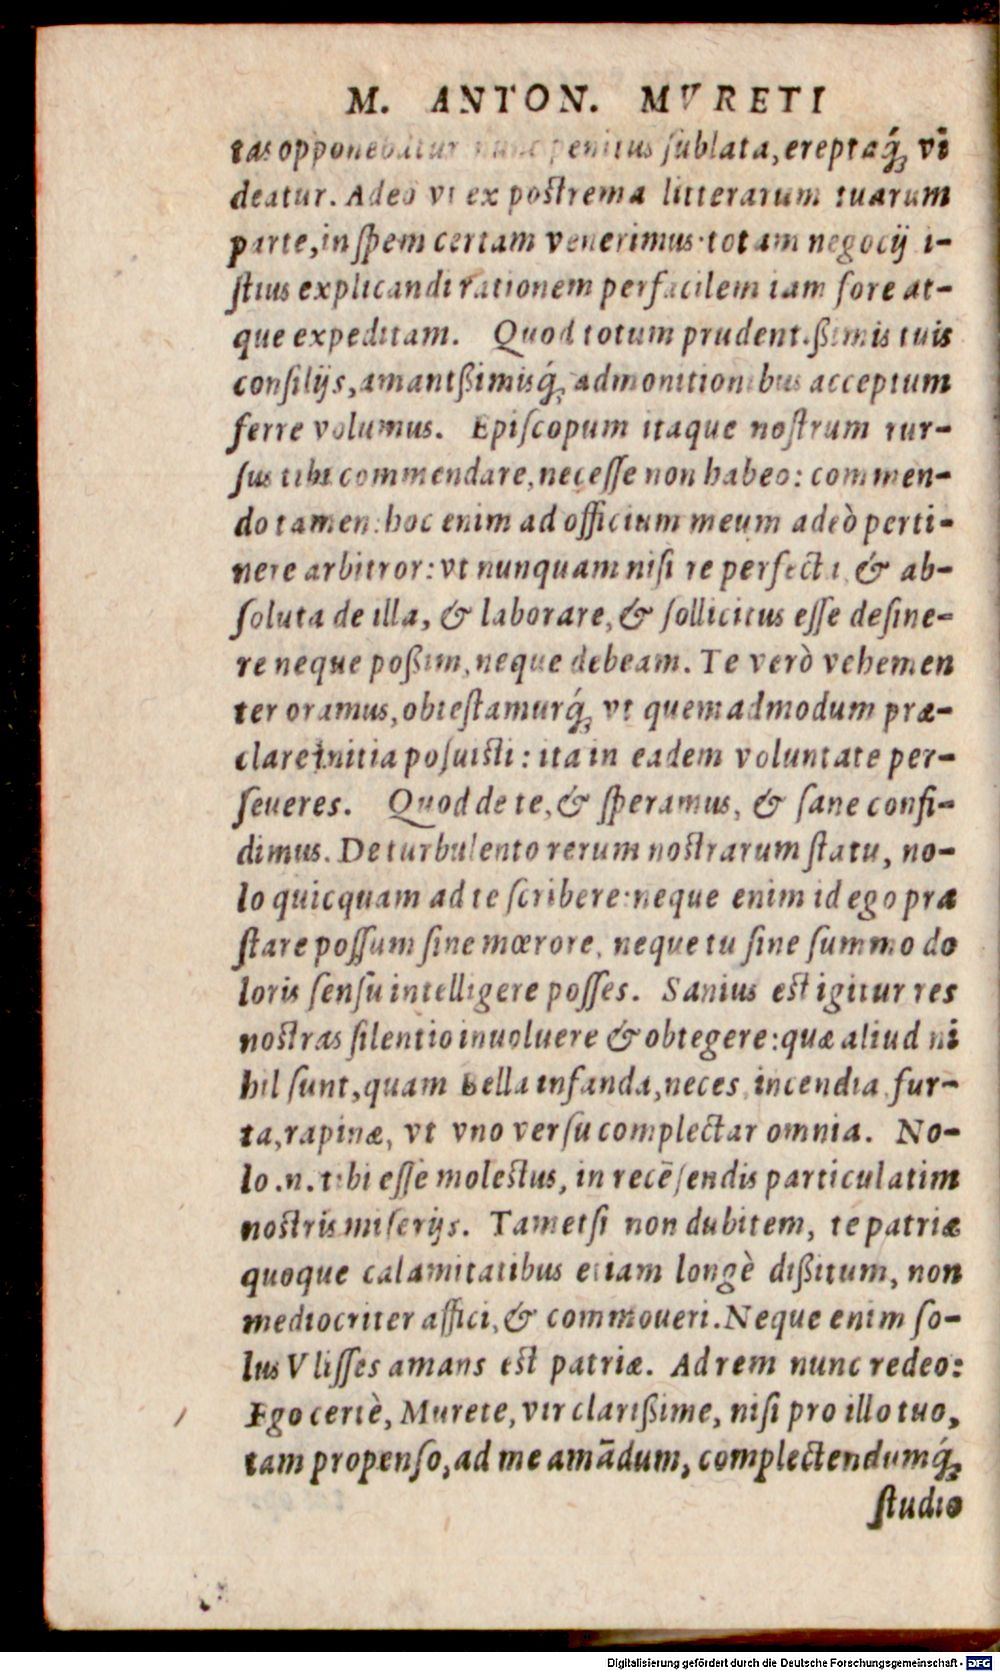 M. ANTON. MVRETI
tas opponebatur nunc penitus ſublata, ereptaq́; vi
deatur. Adeo vt ex poſtrema litterarum tuarum
parte, in ſpem certam venerimus: totam negocij i-
ſtius explicandi rationem perfacilem iam fore at-
que expeditam. Quod totum prudentißimis tuis
conſilijs, amantßimisq́; admonitionibus acceptum
ferre volumus. Epiſcopum itaque noſtrum rur-
ſus tibi commendare, neceſſe non habeo: commen-
do tamen: hoc enim ad officium meum adeò perti-
nere arbitror: vt nunquam niſi re perfecta, & ab-
ſoluta de illa, & laborare, & ſollicitus eſſe deſine-
re neque poßim, neque debeam. Te verò vehemen
ter oramus, obteſtamurq́; vt quemadmodum præ-
clare initia poſuiſti: ita in eadem voluntate per-
ſeueres. Quod de te, & ſperamus, & ſane confi-
dimus. De turbulento rerum noſtrarum ſtatu, no-
lo quicquam ad te ſcribere: neque enim id ego præ
ſtare poſſum ſine mœrore, neque tu ſine ſummo do
loris ſenſu intelligere poſſes. Sanius eſt igitur res
noſtras ſilentio inuoluere & obtegere: quæ aliud ni
hil ſunt, quam Bella infanda, neces, incendia, fur-
ta, rapinæ, vt vno verſu complectar omnia. No-
lo .n. tibi eſſe moleſtus, in recēſendis particulatim
noſtris miſerijs. Tametſi non dubitem, te patriæ
quoque calamitatibus etiam longè dißitum, non
mediocriter affici, & commoueri. Neque enim ſo-
lus Vliſſes amans eſt patriæ. Ad rem nunc redeo:
Ego certè, Murete, vir clarißime, niſi pro illo tuo,
tam propenſo, ad me amādum, complectendumq́;
ſtudio
Digitalisierung gefördert durch die Deutsche Forschungsgemeinschaft - DFG